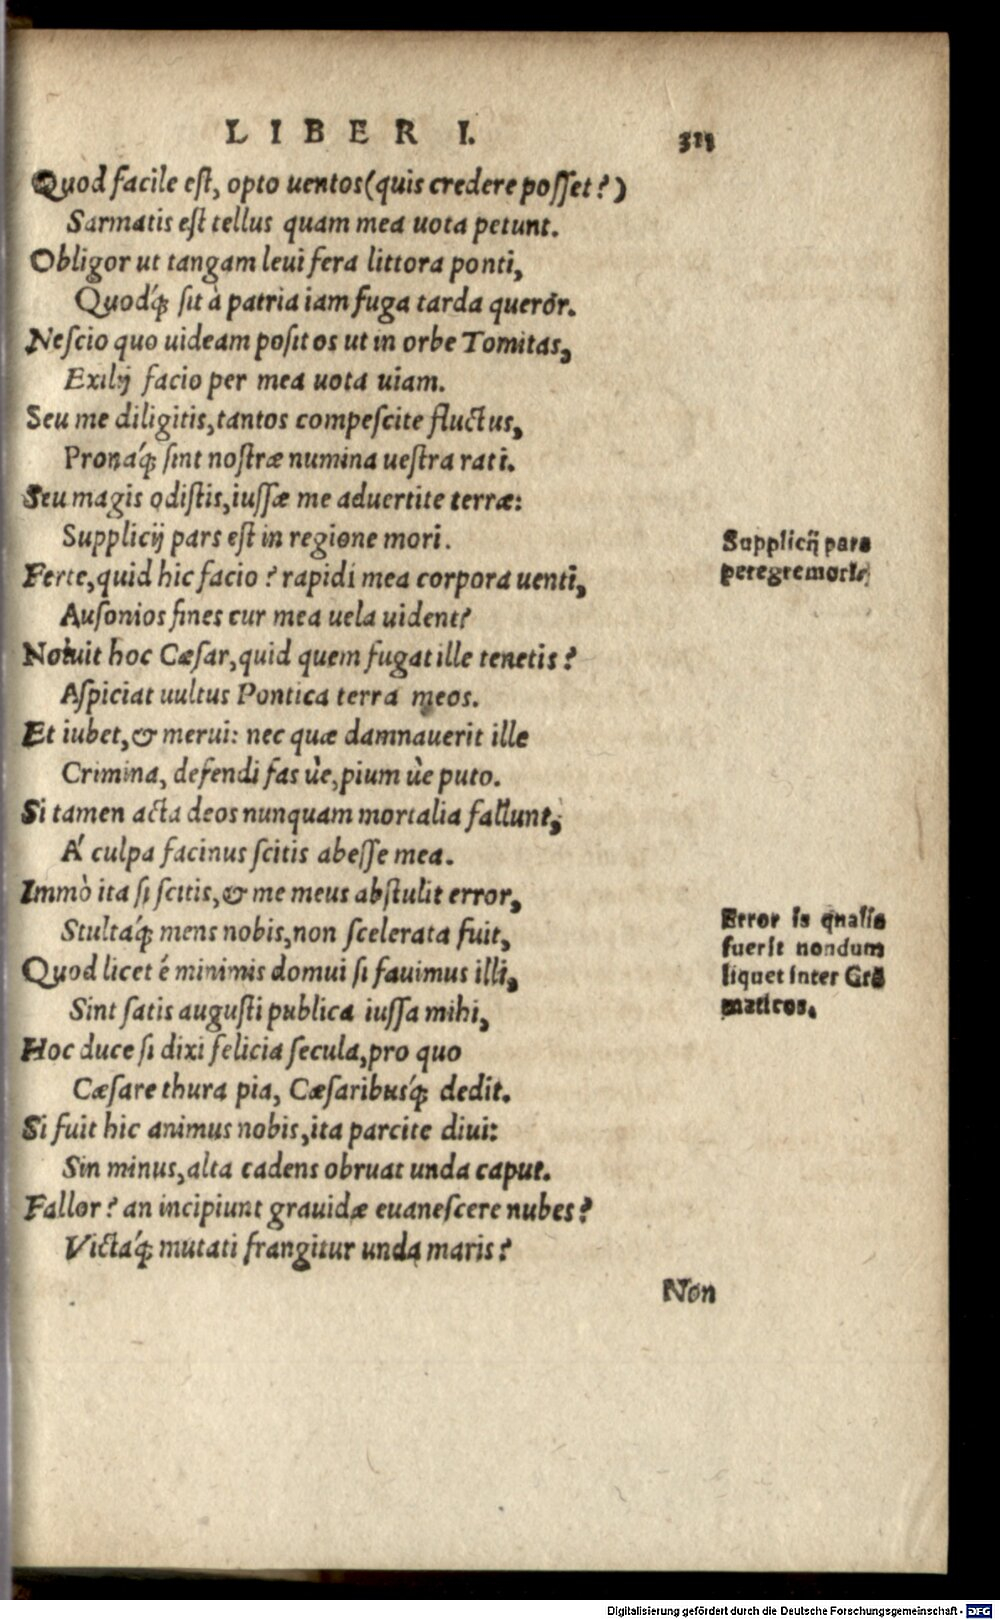 LIBER I.
Quod facile est, opto uentos (quis credere posset?)
Sarmatis est tellus quam mea uota petunt.
Obligor ut tangam leui fera littora ponti,
Quodq́; sit à patria iam fuga tarda queror.
Nescio quo uideam positos ut in orbe Tomitas,
Exilij facio per mea uota uiam.
Seu me diligitis, tantos compescite fluctus,
Pronaq́; sint nostræ numina uestra rati.
Seu magis odistis, iussæ me aduertite terræ:
Supplicij pars est in regione mori.
Supplicij pars
peregre mori.
Ferte, quid hic facio? rapidi mea corpora uenti,
Ausonios fines cur mea uela uident?
Noluit hoc Cæsar, quid quem fugat ille tenetis?
Aspiciat uultus Pontica terra meos.
Et iubet, & merui: nec quæ damnauerit ille
Crimina, defendi fas ùe, pium ùe puto.
Si tamen acta deos nunquam mortalia fallunt,
Á culpa facinus scitis abesse mea.
Immò ita si scitis, & me meus abstulit error,
Stultaq́; mens nobis, non scelerata fuit,
Error is qualis
fuerit nondum
liquet inter Grā
maticos.
Quod licet é minimis domui si fauimus illi,
Sint satis augusti publica iussa mihi,
Hoc duce si dixi felicia secula, pro quo
Cæsare thura pia, Cæsaribusq́; dedit.
Si fuit hic animus nobis, ita parcite diui:
Sin minus, alta cadens obruat unda caput.
Fallor? an incipiunt grauidæ euanescere nubes?
Victaq́; mutati frangitur unda maris?
Non
Digitalisierung gefördert durch die Deutsche Forschungsgemeinschaft - DFG